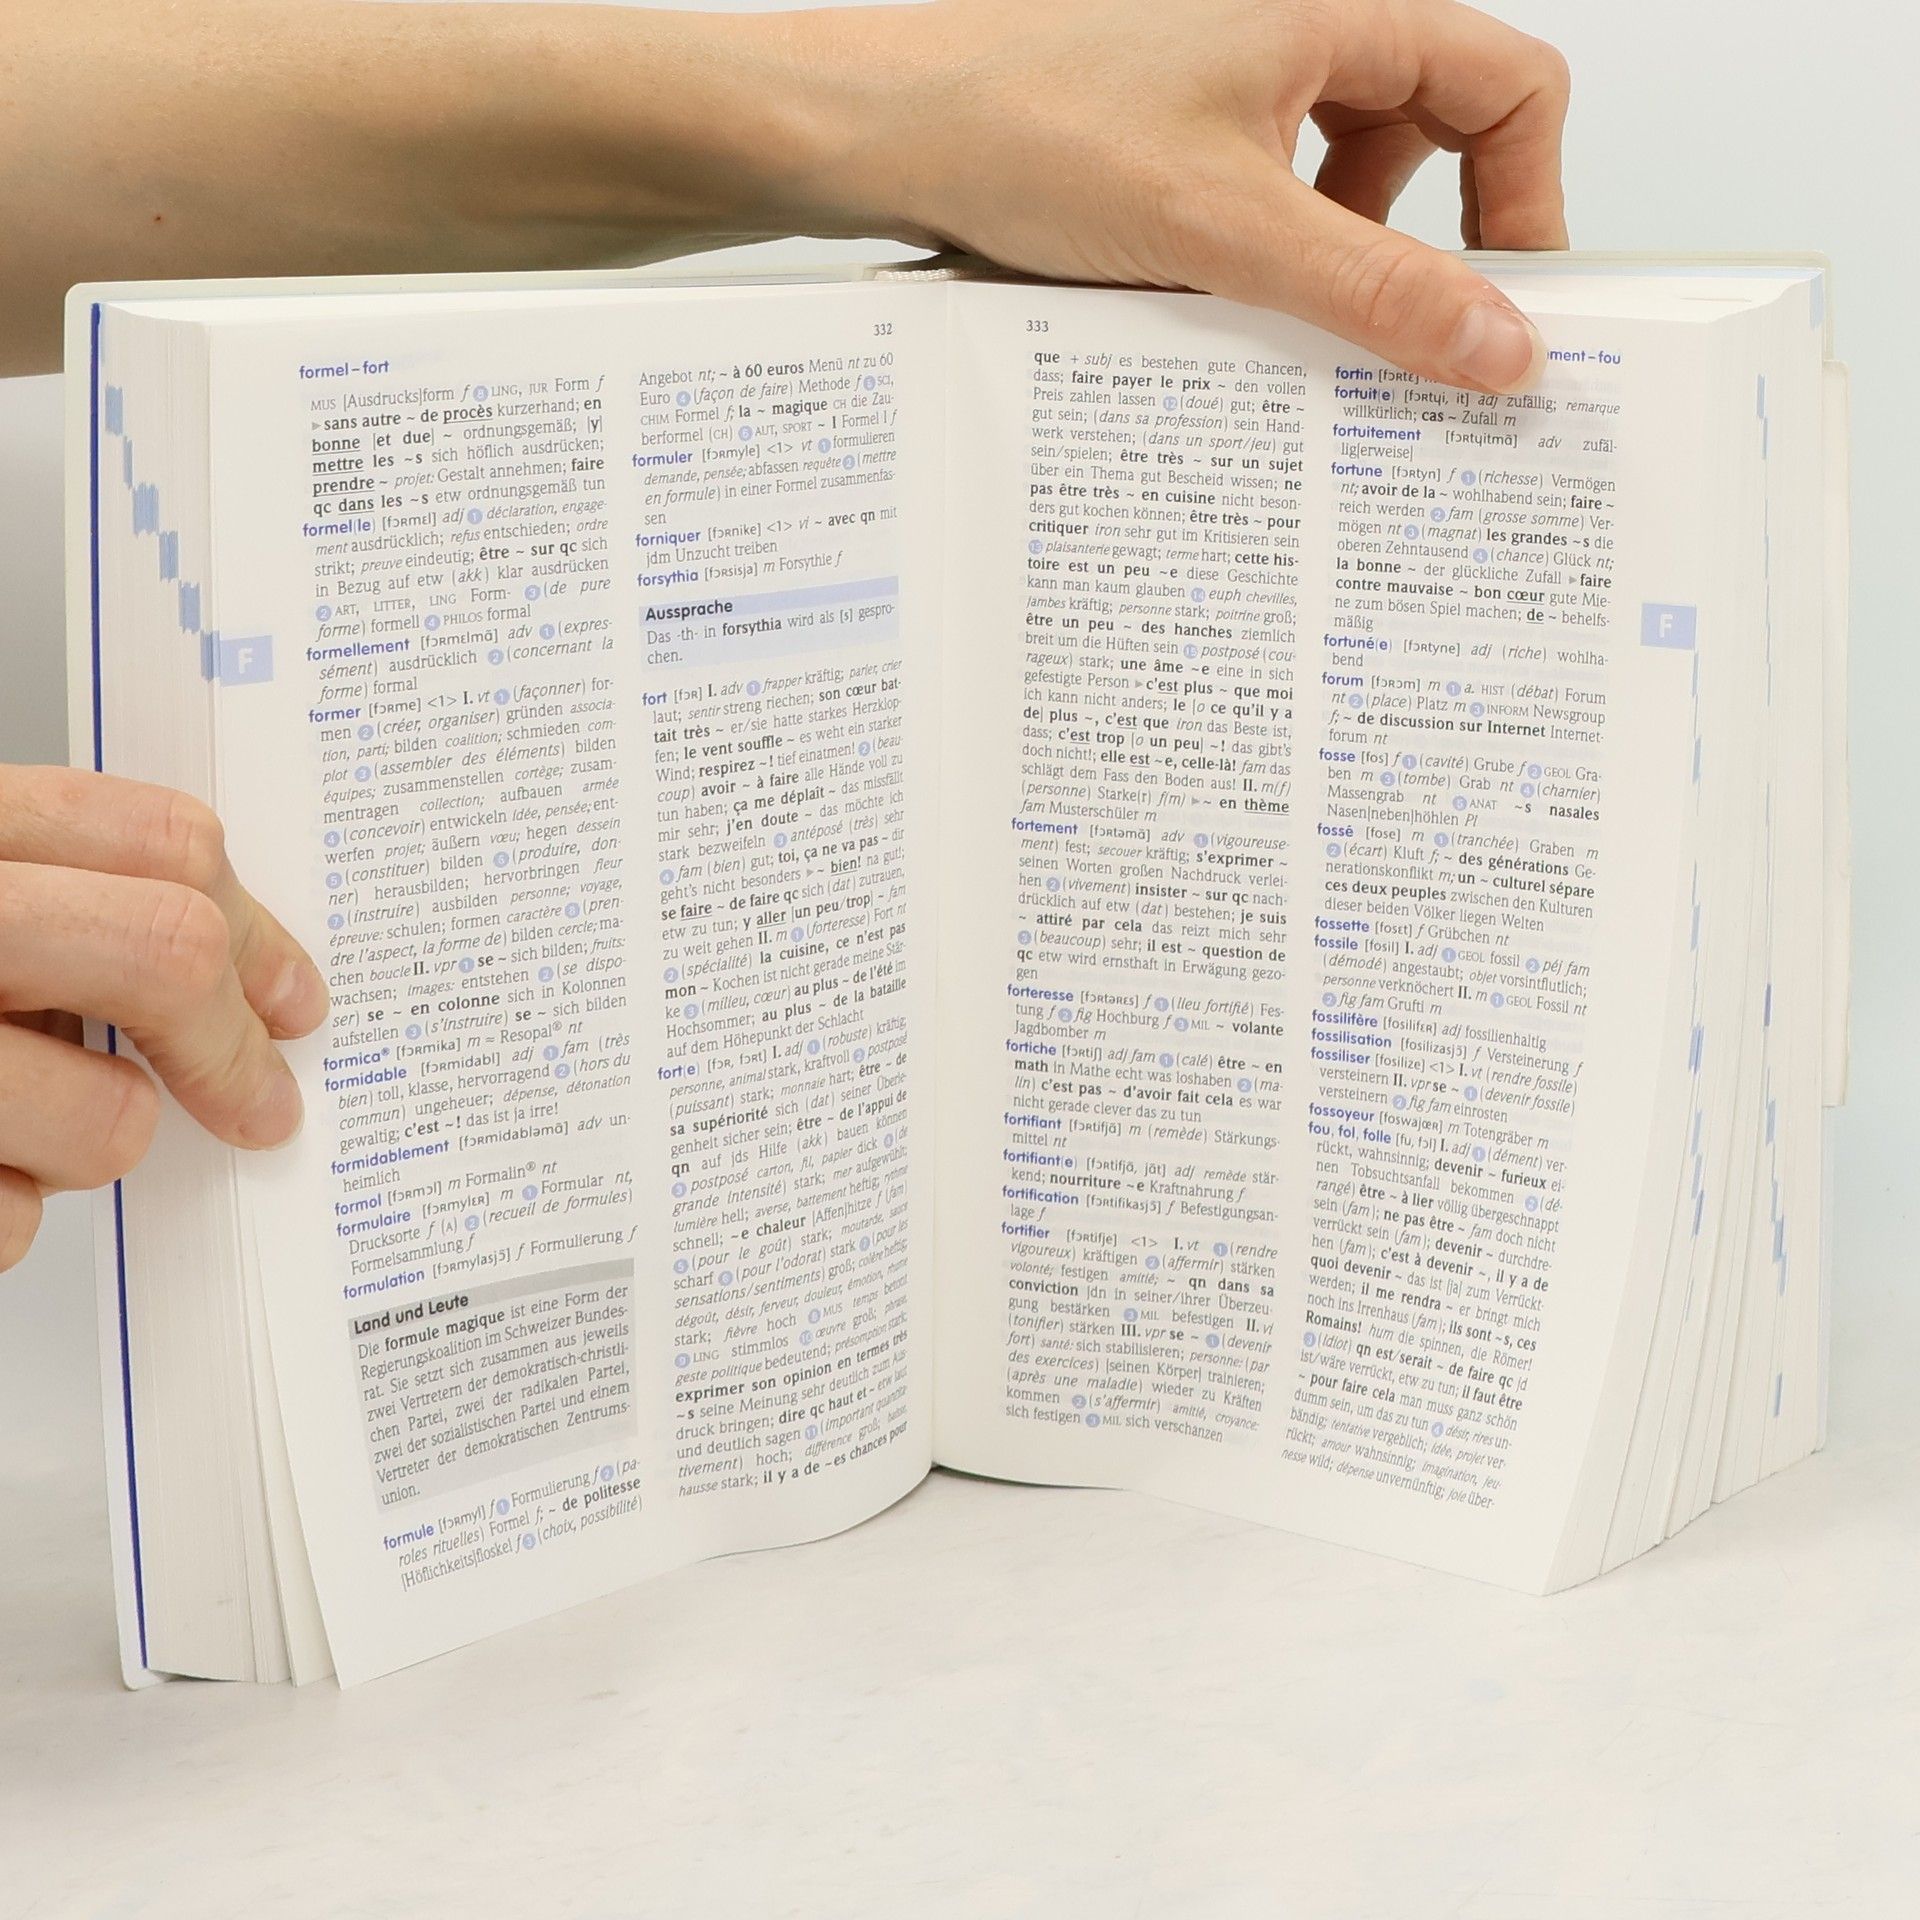 332
formel – fort
MUS [Ausdrucks]form f 8 LING, JUR Form f
▶ sans autre ~ de procès kurzerhand; en
bonne [et due] ~ ordnungsgemäß; [y]
mettre les ~s sich höflich ausdrücken;
prendre ~ projet: Gestalt annehmen; faire
qc dans les ~s etw ordnungsgemäß tun
formel(le) [fɔʀmɛl] adj 1 déclaration, engage-
ment ausdrücklich; refus entschieden; ordre
strikt; preuve eindeutig; être ~ sur qc sich
in Bezug auf etw (akk) klar ausdrücken
2 ART, LITTER, LING Form- 3 (de pure
forme) formell 4 PHILOS formal
formellement [fɔʀmɛlmɑ̃] adv 1 (expres-
sément) ausdrücklich 2 (concernant la
forme) formal
F
former [fɔʀme] <1> I. vt 1 (façonner) for-
men 2 (créer, organiser) gründen associa-
tion, parti; bilden coalition; schmieden com-
plot 3 (assembler des éléments) bilden
équipes; zusammenstellen cortège; zusam-
mentragen collection; aufbauen armée
4 (concevoir) entwickeln idée, pensée; ent-
werfen projet; äußern vœu; hegen dessein
5 (constituer) bilden 6 (produire, don-
ner) herausbilden; hervorbringen fleur
7 (instruire) ausbilden personne; voyage,
épreuve: schulen; formen caractère 8 (pren-
dre l'aspect, la forme de) bilden cercle; ma-
chen boucle II. vpr 1 se ~ sich bilden; fruits:
wachsen; images: entstehen 2 (se dispo-
ser) se ~ en colonne sich in Kolonnen
aufstellen 3 (s'instruire) se ~ sich bilden
formica® [fɔʀmika] m ≈ Resopal® nt
formidable [fɔʀmidabl] adj 1 fam (très
bien) toll, klasse, hervorragend 2 (hors du
commun) ungeheuer; dépense, détonation
gewaltig; c'est ~! das ist ja irre!
formidablement [fɔʀmidabləmɑ̃] adv un-
heimlich
formol [fɔʀmɔl] m Formalin® nt
formulaire [fɔʀmylɛʀ] m 1 Formular nt,
Drucksorte f (A) 2 (recueil de formules)
Formelsammlung f
formulation [fɔʀmylasjɔ̃] f Formulierung f
Land und Leute
Die formule magique ist eine Form der
Regierungskoalition im Schweizer Bundes-
rat. Sie setzt sich zusammen aus jeweils
zwei Vertretern der demokratisch-christli-
chen Partei, zwei der radikalen Partei,
zwei der sozialistischen Partei und einem
Vertreter der demokratischen Zentrums-
union.
formule [fɔʀmyl] f 1 Formulierung f 2 (pa-
roles rituelles) Formel f; ~ de politesse
[Höflichkeits]floskel f 3 (choix, possibilité)
Angebot nt; ~ à 60 euros Menü nt zu 60
Euro 4 (façon de faire) Methode f 5 SCI,
CHIM Formel f; la ~ magique CH die Zau-
berformel (CH) 6 AUT, SPORT ~ I Formel I f
formuler [fɔʀmyle] <1> vt 1 formulieren
demande, pensée; abfassen requête 2 (mettre
en formule) in einer Formel zusammenfas-
sen
forniquer [fɔʀnike] <1> vi ~ avec qn mit
jdm Unzucht treiben
forsythia [fɔʀsisja] m Forsythie f
Aussprache
Das -th- in forsythia wird als [s] gespro-
chen.
fort [fɔʀ] I. adv 1 frapper kräftig; parler, crier
laut; sentir streng riechen; son cœur bat-
tait très ~ er/sie hatte starkes Herzklop-
fen; le vent souffle ~ es weht ein starker
Wind; respirez ~! tief einatmen! 2 (beau-
coup) avoir ~ à faire alle Hände voll zu
tun haben; ça me déplaît ~ das missfällt
mir sehr; j'en doute ~ das möchte ich
stark bezweifeln 3 antéposé (très) sehr
4 fam (bien) gut; toi, ça ne va pas ~ dir
geht's nicht besonders ▶ ~ bien! na gut!;
se faire ~ de faire qc sich (dat) zutrauen,
etw zu tun; y aller [un peu/trop] ~ fam
zu weit gehen II. m 1 (forteresse) Fort nt
2 (spécialité) la cuisine, ce n'est pas
mon ~ Kochen ist nicht gerade meine Stär-
ke 3 (milieu, cœur) au plus ~ de l'été im
Hochsommer; au plus ~ de la bataille
auf dem Höhepunkt der Schlacht
fort(e) [fɔʀ, fɔʀt] I. adj 1 (robuste) kräftig;
personne, animal stark, kraftvoll 2 postposé
(puissant) stark; monnaie hart; être ~ de
sa supériorité sich (dat) seiner Überle-
genheit sicher sein; être ~ de l'appui de
qn auf jds Hilfe (akk) bauen können
3 postposé carton, fil, papier dick 4 (de
grande intensité) stark; mer aufgewühlt;
lumière hell; averse, battement heftig; rythme
schnell; ~e chaleur [Affen]hitze f (fam)
5 (pour le goût) stark; moutarde, sauce
scharf 6 (pour l'odorat) stark 7 (pour les
sensations/sentiments) groß; colère heftig;
dégoût, désir, ferveur, douleur, émotion, rhume
stark; fièvre hoch 8 MUS temps betont
9 LING stimmlos 10 œuvre groß; phrase,
geste politique bedeutend; présomption stark;
exprimer son opinion en termes très
~s seine Meinung sehr deutlich zum Aus-
druck bringen; dire qc haut et ~ etw laut
und deutlich sagen 11 (important quantita-
tivement) hoch; différence groß; baisse,
hausse stark; il y a de ~es chances pour
333
ment – fou
que + subj es bestehen gute Chancen,
dass; faire payer le prix ~ den vollen
Preis zahlen lassen 12 (doué) gut; être ~
gut sein; (dans sa profession) sein Hand-
werk verstehen; (dans un sport/jeu) gut
sein/spielen; être très ~ sur un sujet
über ein Thema gut Bescheid wissen; ne
pas être très ~ en cuisine nicht beson-
ders gut kochen können; être très ~ pour
critiquer iron sehr gut im Kritisieren sein
13 plaisanterie gewagt; terme hart; cette his-
toire est un peu ~e diese Geschichte
kann man kaum glauben 14 euph chevilles,
jambes kräftig; personne stark; poitrine groß;
être un peu ~ des hanches ziemlich
breit um die Hüften sein 15 postposé (cou-
rageux) stark; une âme ~e eine in sich
gefestigte Person ▶ c'est plus ~ que moi
ich kann nicht anders; le [o ce qu'il y a
de] plus ~, c'est que iron das Beste ist,
dass; c'est trop [o un peu] ~! das gibt's
doch nicht!; elle est ~e, celle-là! fam das
schlägt dem Fass den Boden aus! II. m(f)
(personne) Starke(r) f(m) ▶ ~ en thème
fam Musterschüler m
fortement [fɔʀtəmɑ̃] adv 1 (vigoureuse-
ment) fest; secouer kräftig; s'exprimer ~
seinen Worten großen Nachdruck verlei-
hen 2 (vivement) insister ~ sur qc nach-
drücklich auf etw (dat) bestehen; je suis
~ attiré par cela das reizt mich sehr
3 (beaucoup) sehr; il est ~ question de
qc etw wird ernsthaft in Erwägung gezo-
gen
forteresse [fɔʀtəʀɛs] f 1 (lieu fortifié) Fes-
tung f 2 fig Hochburg f 3 MIL ~ volante
Jagdbomber m
fortiche [fɔʀtiʃ] adj fam 1 (calé) être ~ en
math in Mathe echt was loshaben 2 (ma-
lin) c'est pas ~ d'avoir fait cela es war
nicht gerade clever das zu tun
fortifiant [fɔʀtifjɑ̃] m (remède) Stärkungs-
mittel nt
fortifiant(e) [fɔʀtifjɑ̃, jɑ̃t] adj remède stär-
kend; nourriture ~e Kraftnahrung f
fortification [fɔʀtifikasjɔ̃] f Befestigungsan-
lage f
fortifier [fɔʀtifje] <1> I. vt 1 (rendre
vigoureux) kräftigen 2 (affermir) stärken
volonté; festigen amitié; ~ qn dans sa
conviction jdn in seiner/ihrer Überzeu-
gung bestärken 3 MIL befestigen II. vi
(tonifier) stärken III. vpr se ~ 1 (devenir
fort) santé: sich stabilisieren; personne: (par
des exercices) [seinen Körper] trainieren;
(après une maladie) wieder zu Kräften
kommen 2 (s'affermir) amitié, croyance:
sich festigen 3 MIL sich verschanzen
fortin [fɔʀtɛ̃]
fortuit(e) [fɔʀtɥi, it] adj zufällig; remarque
willkürlich; cas ~ Zufall m
fortuitement [fɔʀtɥitmɑ̃] adv zufäl-
lig[erweise]
fortune [fɔʀtyn] f 1 (richesse) Vermögen
nt; avoir de la ~ wohlhabend sein; faire ~
reich werden 2 fam (grosse somme) Ver-
mögen nt 3 (magnat) les grandes ~s die
oberen Zehntausend 4 (chance) Glück nt;
la bonne ~ der glückliche Zufall ▶ faire
contre mauvaise ~ bon cœur gute Mie-
ne zum bösen Spiel machen; de ~ behelfs-
mäßig
fortuné(e) [fɔʀtyne] adj (riche) wohlha-
bend
F
forum [fɔʀɔm] m 1 a. HIST (débat) Forum
nt 2 (place) Platz m 3 INFORM Newsgroup
f; ~ de discussion sur Internet Internet-
forum nt
fosse [fos] f 1 (cavité) Grube f 2 GEOL Gra-
ben m 3 (tombe) Grab nt 4 (charnier)
Massengrab nt 5 ANAT ~s nasales
Nasen[neben]höhlen Pl
fossé [fose] m 1 (tranchée) Graben m
2 (écart) Kluft f; ~ des générations Ge-
nerationskonflikt m; un ~ culturel sépare
ces deux peuples zwischen den Kulturen
dieser beiden Völker liegen Welten
fossette [fosɛt] f Grübchen nt
fossile [fosil] I. adj 1 GEOL fossil 2 péj fam
(démodé) angestaubt; objet vorsintflutlich;
personne verknöchert II. m 1 GEOL Fossil nt
2 fig fam Grufti m
fossilifère [fosilifɛʀ] adj fossilienhaltig
fossilisation [fosilizasjɔ̃] f Versteinerung f
fossiliser [fosilize] <1> I. vt (rendre fossile)
versteinern II. vpr se ~ 1 (devenir fossile)
versteinern 2 fig fam einrosten
fossoyeur [foswajœʀ] m Totengräber m
fou, fol, folle [fu, fɔl] I. adj 1 (dément) ver-
rückt, wahnsinnig; devenir ~ furieux ei-
nen Tobsuchtsanfall bekommen 2 (dé-
rangé) être ~ à lier völlig übergeschnappt
sein (fam); ne pas être ~ fam doch nicht
verrückt sein (fam); devenir ~ durchdre-
hen (fam); c'est à devenir ~, il y a de
quoi devenir ~ das ist [ja] zum Verrückt-
werden; il me rendra ~ er bringt mich
noch ins Irrenhaus (fam); ils sont ~s, ces
Romains! hum die spinnen, die Römer!
3 (idiot) qn est/serait ~ de faire qc jd
ist/wäre verrückt, etw zu tun; il faut être
~ pour faire cela man muss ganz schön
dumm sein, um das zu tun 4 désir, rires un-
bändig; tentative vergeblich; idée, projet ver-
rückt; amour wahnsinnig; imagination, jeu-
nesse wild; dépense unvernünftig; joie über-